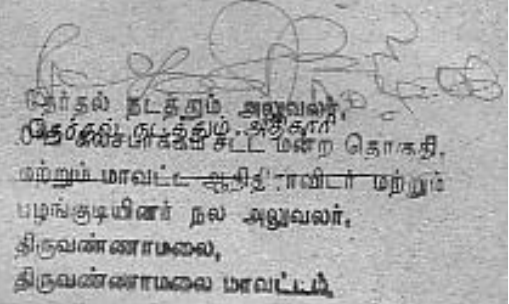 தேர்தல் நடத்தும் அலுவலர்,
தேர்தல் நடத்தும் அதிகாரி
கலசபாக்கம் சட்ட மன்ற தொகுதி,
மற்றும் மாவட்ட ஆதிதிராவிடர் மற்றும்
பழங்குடியினர் நல அலுவலர்,
திருவண்ணாமலை,
திருவண்ணாமலை மாவட்டம்.